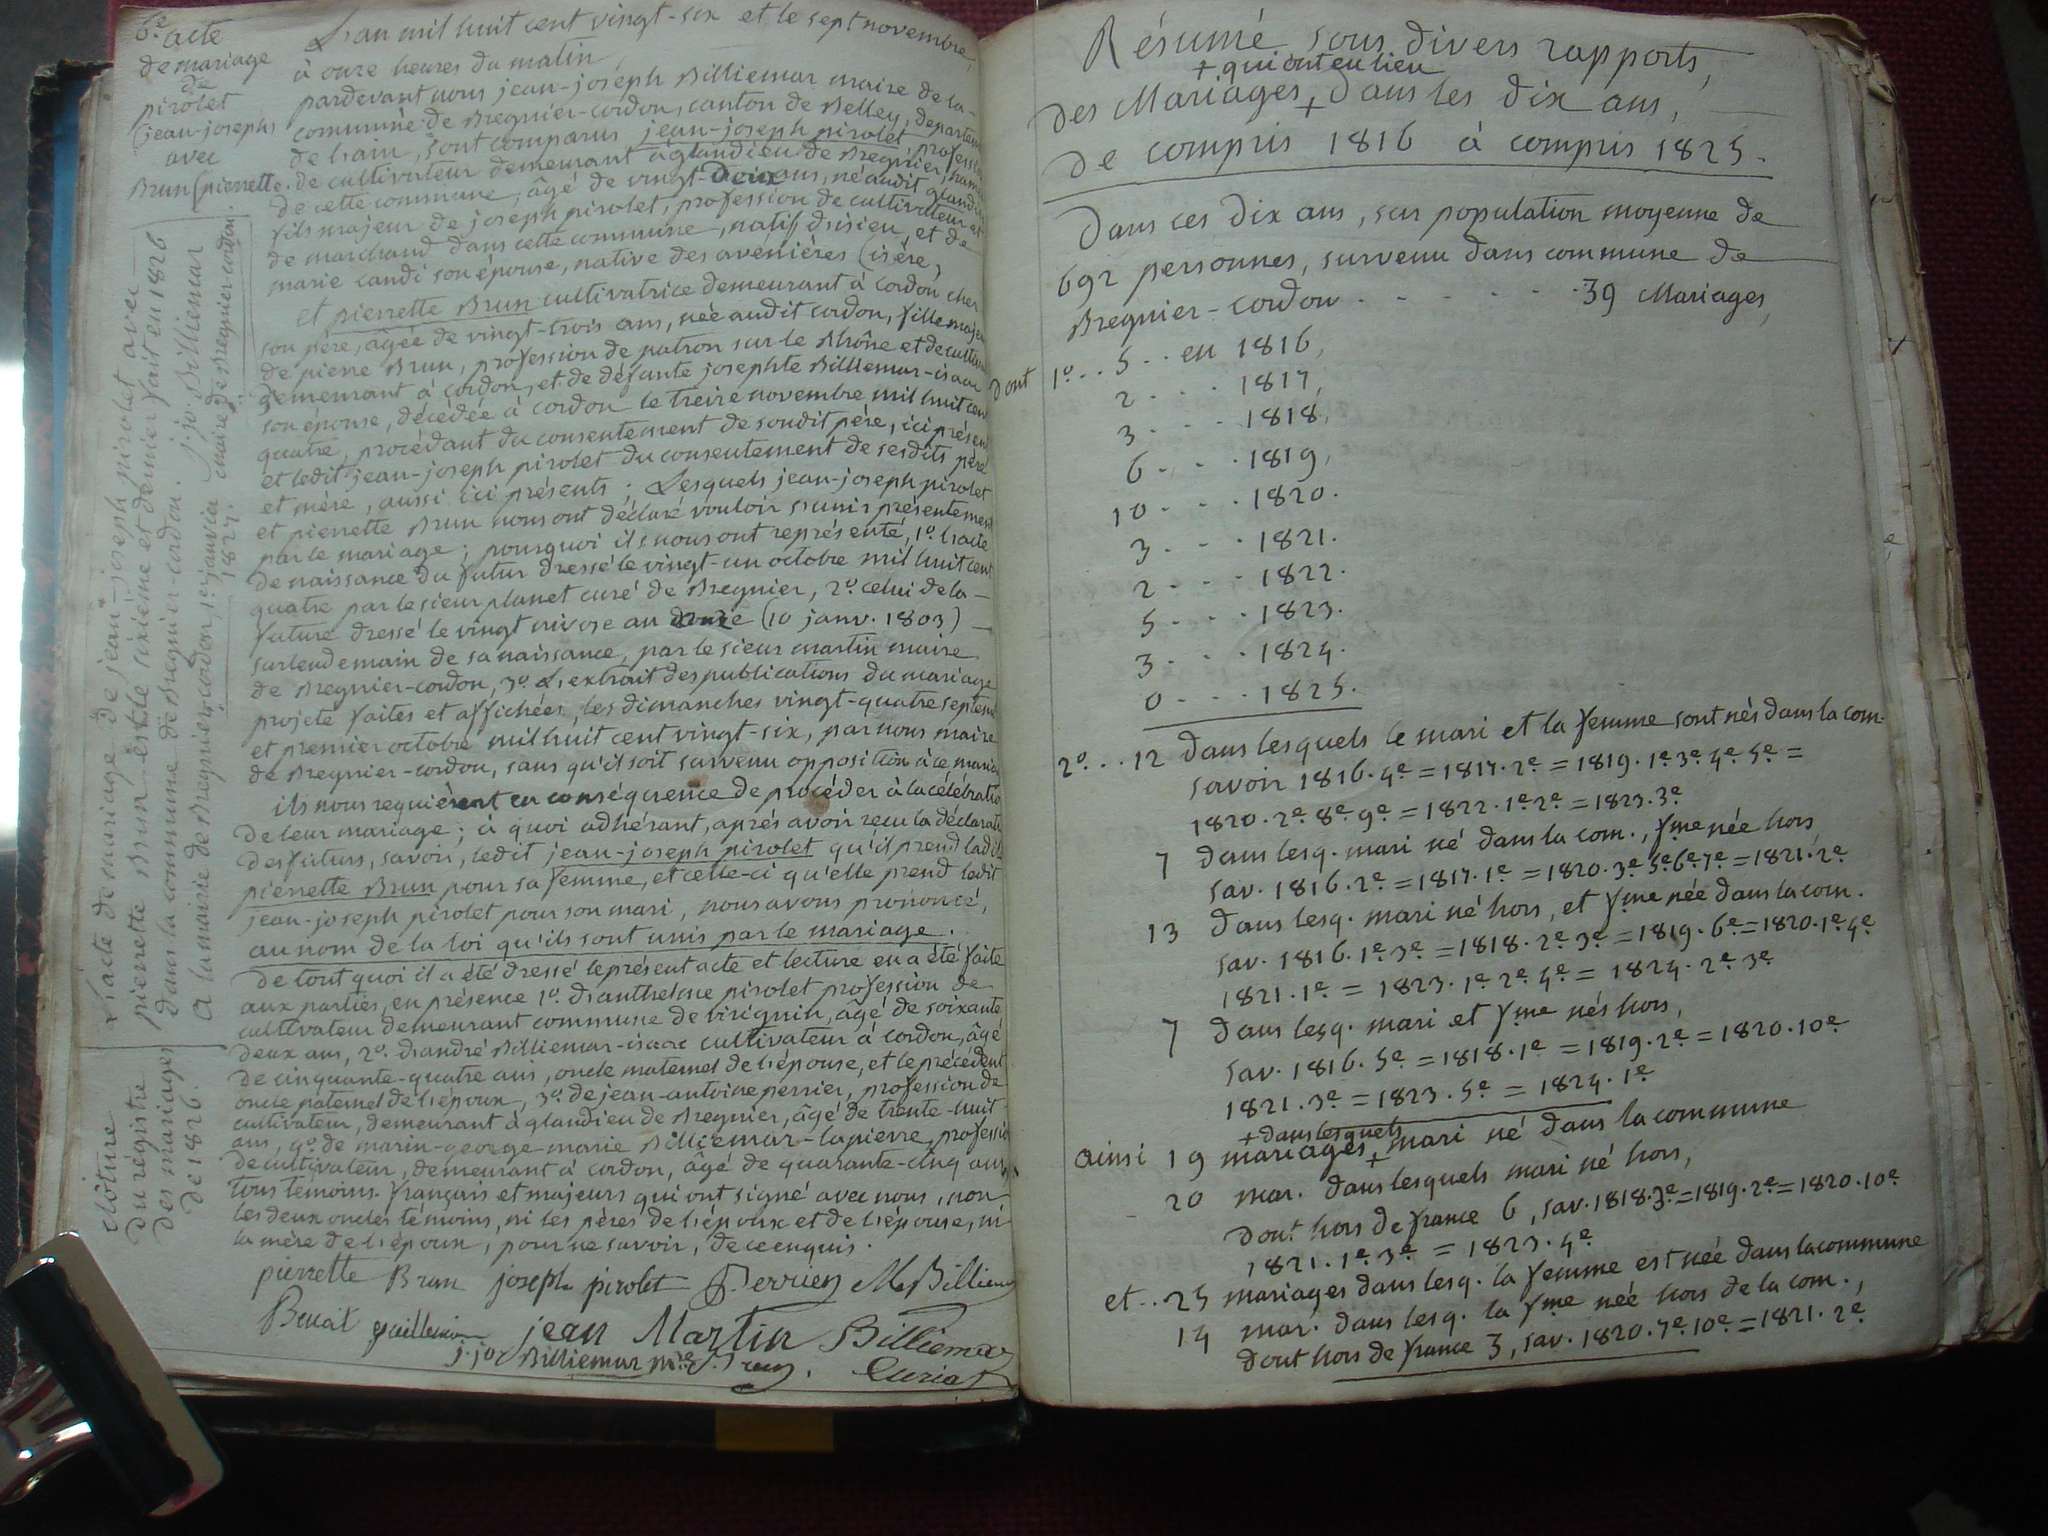 6e acte
de mariage
de
pirolet
(jean-joseph)
avec
Brun (pierrette.
L'an mil huit cent vingt-six et le sept novembre,
à onze heures du matin
pardevant nous jean-joseph Billiemaz maire de la-
commune de Bregnier-cordon, canton de Belley, départem
de l'ain, sont comparus jean-joseph pirolet, professi
de cultivateur demeurant à glandieu de Bregnier, hameau
de cette commune, âgé de vingt-deux ans, né audit glandieu
fils majeur de joseph pirolet, profession de cultivateur et
de marchand dans cette commune, natif d'isieu, et de
marie candi son épouse, native des avenières (isère,
et pierrette Brun cultivatrice demeurant à cordon chez
son père, âgée de vingt-trois ans, née audit cordon, fille majeu
de pierre Brun, profession de patron sur le Rhône et de cultiva
demeurant à cordon, et de défunte josephte Billiemaz-isaac
son épouse, décédée à cordon le treize novembre mil huit cent
quatre, procédant du consentement de sondit père, ici présent
et ledit jean-joseph pirolet du consentement de sesdits père
et mère, aussi ici présents; Lesquels jean-joseph pirolet
et pierrette Brun nous ont déclaré vouloir s'unir présentement
par le mariage; pourquoi ils nous ont représenté, 1o. l'acte
de naissance du futur dressé le vingt-un octobre mil huit cent
quatre par le sieur planet curé de Bregnier, 2o. celui de la-
future dressé le vingt nivose an onze (10 janv. 1803)-
surlendemain de sa naissance, par le sieur martin maire
de Bregnier-cordon, 3o. L'extrait des publications du mariage
projeté faites et affichées, les dimanches vingt-quatre septem
et premier octobre mil huit cent vingt-six, par nous maire
de Bregnier-cordon, sans qu'il soit survenu opposition à ce mariag
ils nous requièrent en conséquence de procéder à la célébratio
de leur mariage; à quoi adhérant, après avoir reçu la déclarati
des futurs, savoir, ledit jean-joseph pirolet qu'il prend ladit
pierrette Brun pour sa femme, et celle-ci qu'elle prend ledit
jean-joseph pirolet pour son mari, nous avons prononcé,
au nom de la loi qu'ils sont unis par le mariage.
De tout quoi il a été dressé le présent acte et lecture en a été faite
aux parties, en présence 1o. d'anthelme pirolet profession de
cultivateur demeurant commune de virignin, âgé de soixante
deux ans, 2o. d'andré Billiemaz-isaac cultivateur à cordon, âgé
de cinquante-quatre ans, oncle maternel de l'épouse, et le précédent
oncle paternel de l'époux, 3o. de jean-antoine perrier, profession de
cultivateur, demeurant à glandieu de Bregnier, âgé de trente-huit
ans, 4o. de marin-george-marie Billiemaz-lapierre, professio
de cultivateur, demeurant à cordon, âgé de quarante-cinq ans,
tous témoins français et majeurs qui ont signé avec nous, non
les deux oncles témoins, ni les pères de l'époux et de l'épouse, ni
la mère de l'époux, pour ne savoir, de ce enquis.
pierrette Brun joseph pirolet Perrier M Billiemaz
Benat jean Martin Billiemaz
j. jo. Billiemaz mre
L'acte de mariage de jean-joseph pirolet avec
pierrette Brun est le sixième et dernier fait en 1826
dans la commune de Bregnier-cordon.
A la mairie de Bregnier-cordon, 1er janvier 1827.
j. jo. Billiemaz
maire de Bregnier-cordon.
clôture
du registre
des mariages
de 1826.
Résumé sous divers rapports,
+ qui ont eu lieu
des Mariages + dans les dix ans,
de compris 1816 à compris 1825.
Dans ces dix ans, sur population moyenne de
692 personnes, survenu dans commune de
Bregnier-cordon . . . . . . 39 Mariages,
dont 1o. . . 5 . . en 1816,
2 . . . 1817,
3 . . . 1818,
6 . . . 1819,
10 . . . 1820.
3 . . . 1821.
2 . . . 1822.
5 . . . 1823.
3 . . . 1824.
0 . . . 1825.
2o. . . 12 dans lesquels le mari et la femme sont nés dans la com.
savoir 1816. 4e = 1817. 2e = 1819. 1e 3e 4e 5e =
1820. 2e 8e 9e = 1822. 1e 2e = 1823. 3e
7 dans lesq. mari né dans la com., fme née hors,
sav. 1816. 2e = 1817. 1e = 1820. 3e 5e 6e 7e = 1821. 2e
13 dans lesq. mari né hors, et fme née dans la com.
sav. 1816. 1e 3e = 1818. 2e 3e = 1819. 6e = 1820. 1e 4e
1821. 1e = 1823. 1e 2e 4e = 1824. 2e 3e
7 dans lesq. mari et fme nés hors,
sav. 1816. 5e = 1818. 1e = 1819. 2e = 1820. 10e
1821. 3e = 1823. 5e = 1824. 1e
+ dans lesquels
ainsi 19 mariages + mari né dans la commune
20 mar. dans lesquels mari né hors,
dont hors de france 6, sav. 1818. 3e = 1819. 2e = 1820. 10e
1821. 1e 3e = 1823. 4e
et . . 25 mariages dans lesq. la femme est née dans la commune
14 mar. dans lesq. la fme née hors de la com.,
dont hors de france 3, sav. 1820. 7e 10e = 1821. 2e